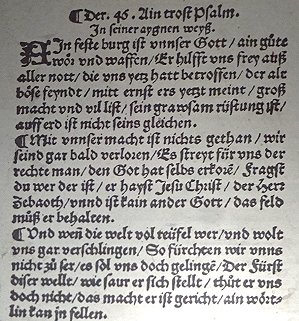 ¶ Der. 46. Ain trost Psalm.
In seiner aygnen weyß.
AIn feste burg ist vnnser Gott/ ain gůte
wör vnd waffen/ Er hilfft vns frey auß
aller nott/ die vns yetz hatt betroffen/ der alt
böse feyndt/ mitt ernst ers yetzt meint/ groß
macht vnd vil list/ sein grawsam rüstung ist/
auff erd ist nicht seins gleichen.
¶ Mit vnnser macht ist nichts gethan/ wir
seind gar bald verloren/ Es streyt für vns der
rechte man/ den Got hat selbs erkorē/ Fragst
du wer der ist/ er hayst Jesu Christ/ der Herr
Zebaoth/ vnnd ist kain ander Gott/ das feld
můß er behalten.
¶ Vnd weñ die welt vol teüfel wer/ vnd wolt
vns gar verschlingen/ So fürchten wir vnns
nicht zů ser/ es sol vns doch gelingē/ Der Fürst
diser wellt/ wie saur er sich stellt/ thůt er vns
doch nicht/ das macht er ist gericht/ ain wört-
lin kan jn fellen.